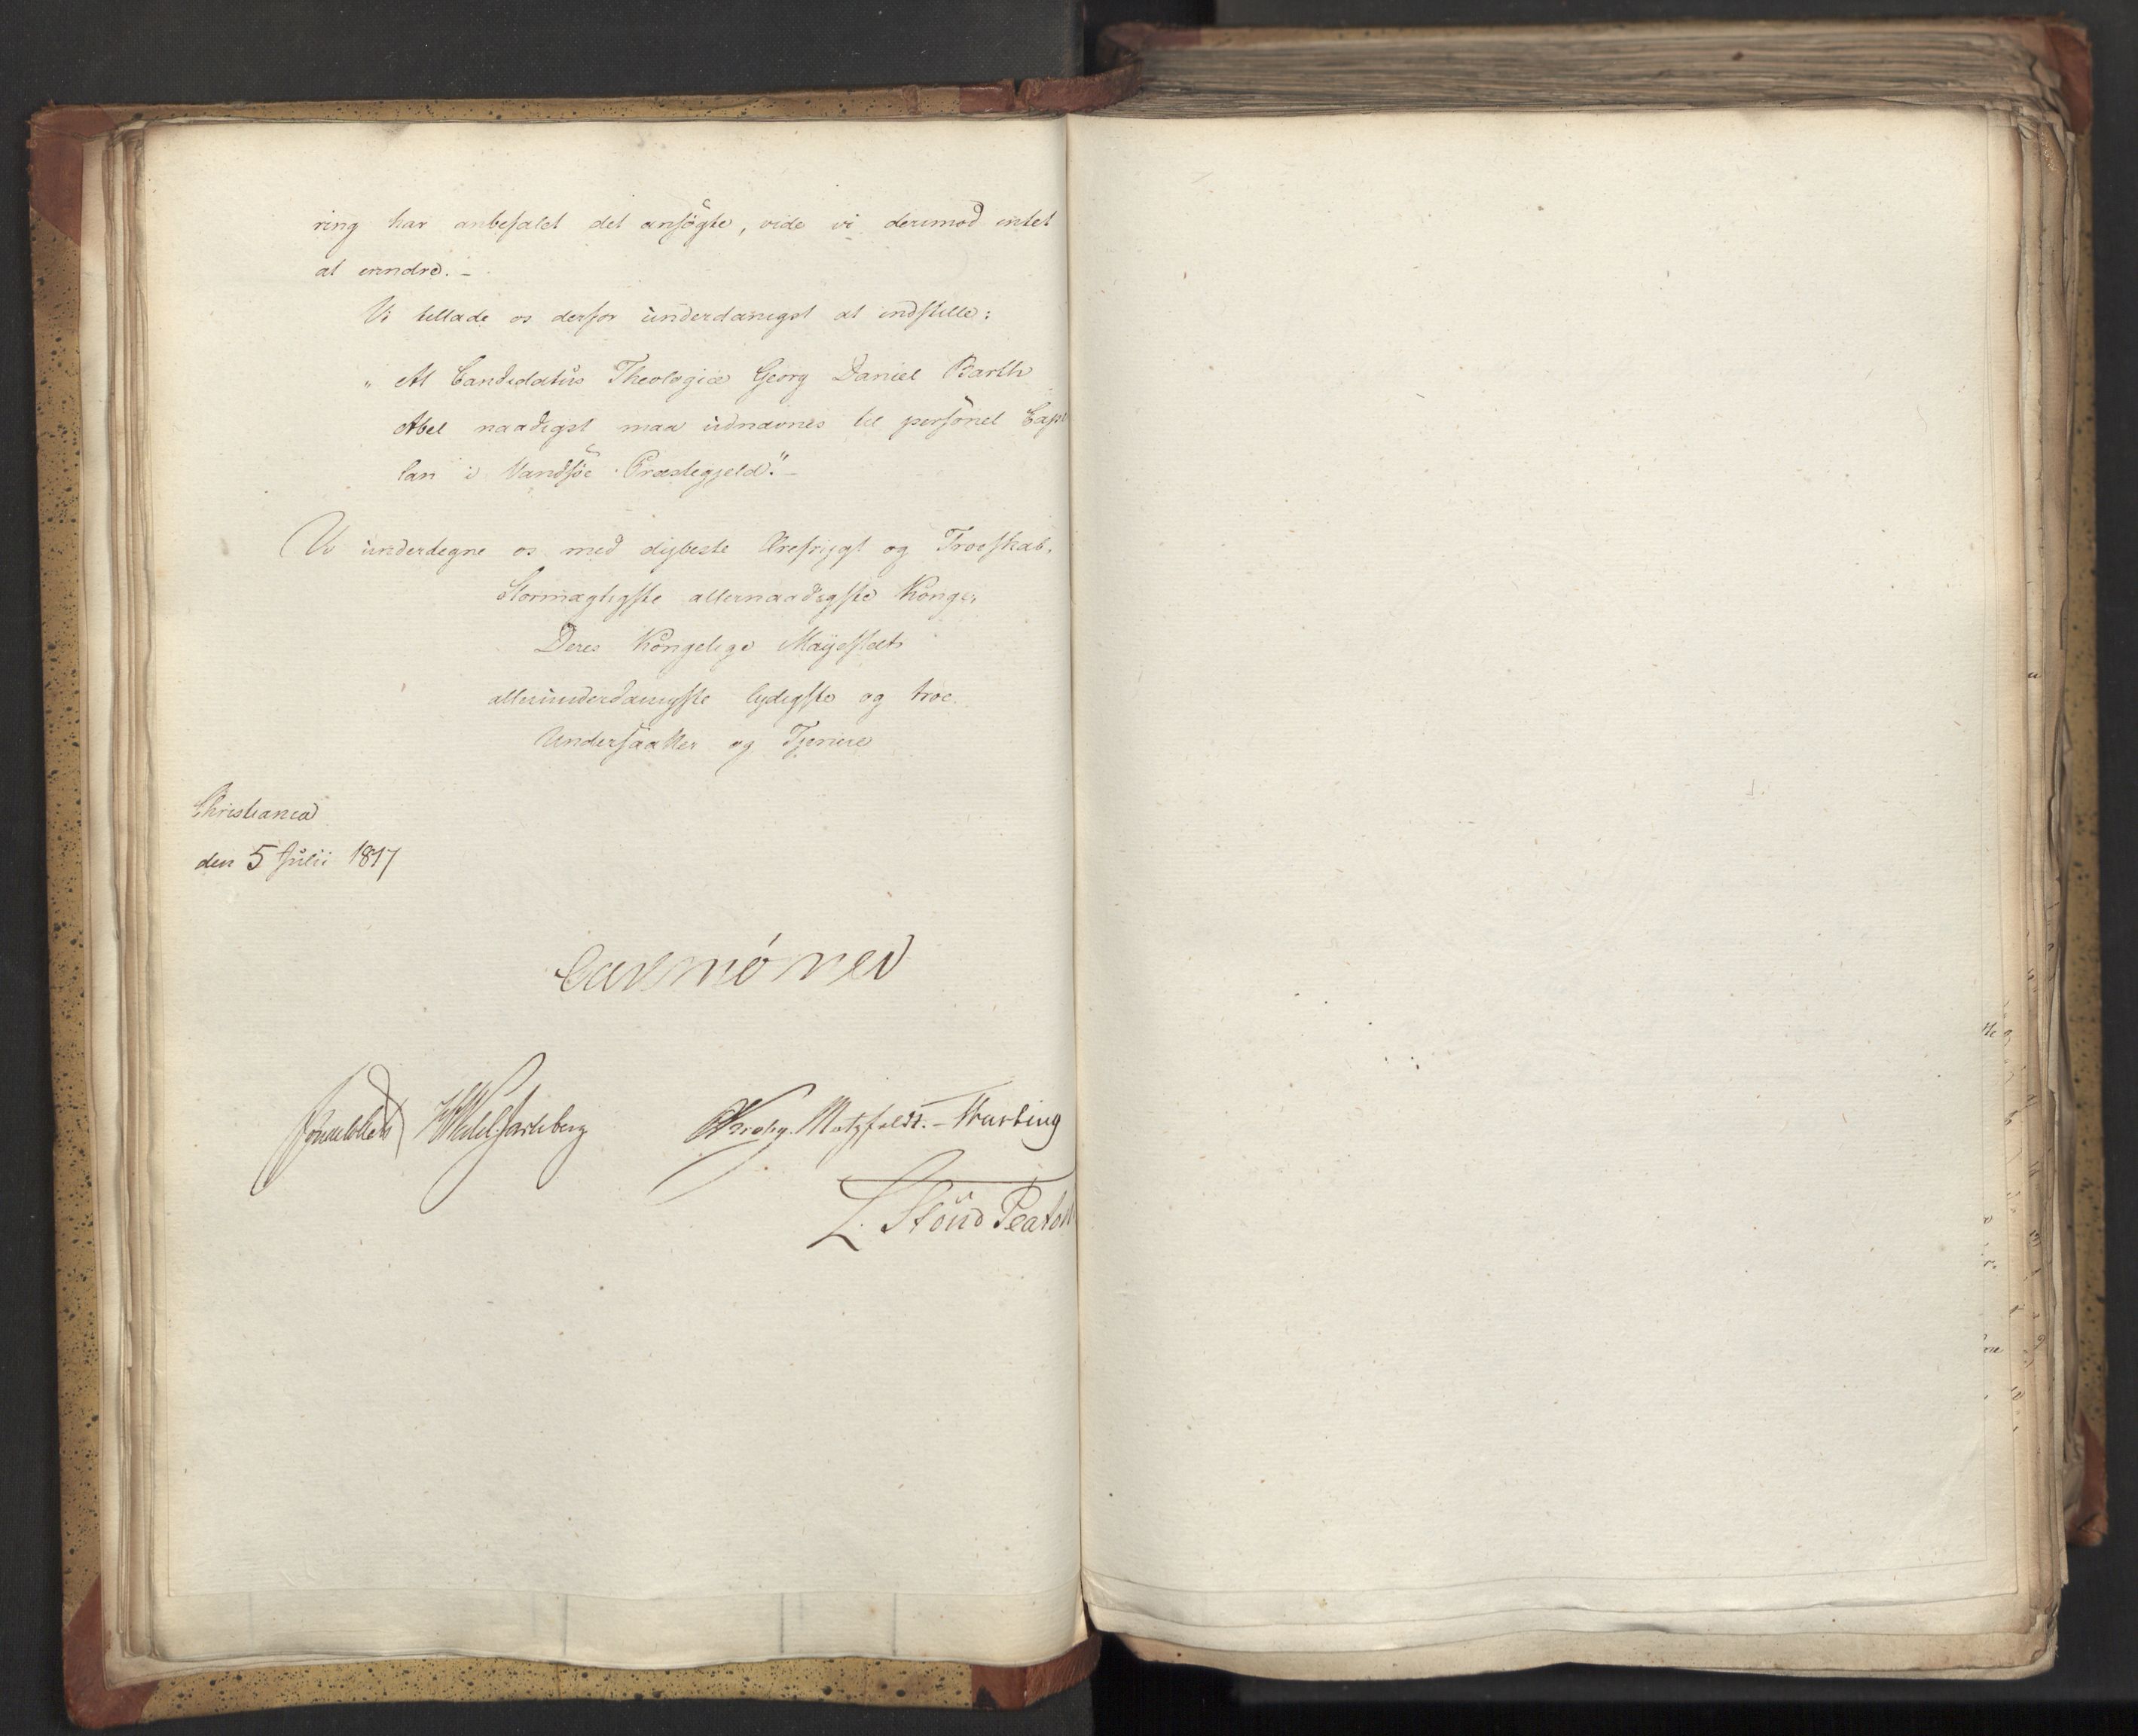 ring har anbefalet det ansøgte, vide vi derimod intet
at erindre. –
Vi tillade os derfor underdanigst at indstille:
„At Candidatus Theologiæ Georg Daniel Barth
Abel naadigst maa udnævnes til personel Capel
lan i Vandsøe Præstegjeld." –
Vi underdegne os med dybeste Ærefrygt og Troeskab,
Stormægtigste allernaadigste Konge,
Deres Kongelige Mayestæts
allerunderdanigste lydigste og troe
Undersaatter og Tjenere
Christiania
den 5 Julii 1817
Sommerhielm HWedelJarlsberg CKrohg. Motzfeldt. –
L. Stoud Platou